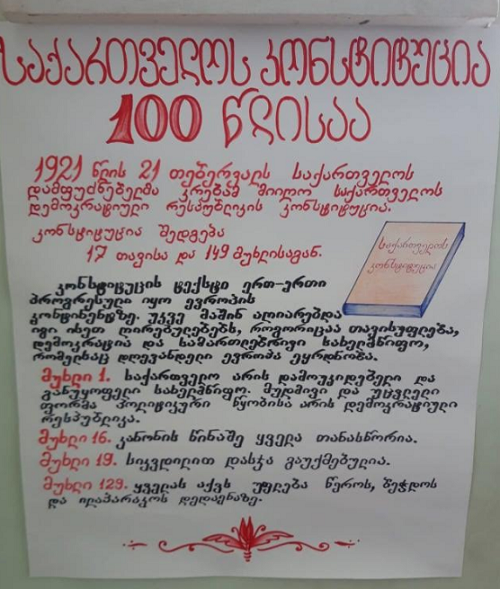 საქართველოს კონსტიტუცია
100 წლისაა
1921 წლის 21 თებერვალს საქართველოს
დამფუძნებელმა კრებამ მიიღო საქართველოს
დემოკრატიული რესპუბლიკის კონსტიტუცია.
კონსტიტუცია შედგება
17 თავისა და 149 მუხლისაგან.
საქართველოს
კონსტიტუცია
კონსტიტუციის ტექსტი ერთ-ერთი
პროგრესული იყო ევროპის
კონტინენტზე. უკვე მაშინ აღიარებდა
იგი ისეთ ღირებულებებს, როგორიცაა თავისუფლება,
დემოკრატია და სამართლებრივი სახელმწიფო,
რომელსაც დღევანდელი ევროპა ეყრდნობა.
მუხლი 1. საქართველო არის დამოუკიდებელი და
განუყოფელი სახელმწიფო. მუდმივი და უცვლელი
ფორმა პოლიტიკური წყობისა არის დემოკრატიული
რესპუბლიკა.
მუხლი 16. კანონის წინაშე ყველა თანასწორია.
მუხლი 19. სიკვდილით დასჯა გაუქმებულია.
მუხლი 129. ყველას აქვს უფლება წეროს, ბეჭდოს
და ილაპარაკოს დედაენაზე.